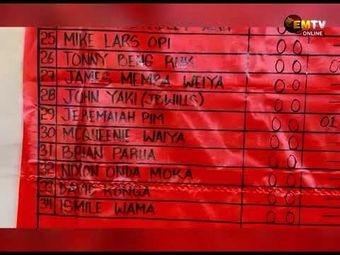 EMTV
ONLINE
25 MIKE LARS OPI 0 0
26 TONNY BENG 0 0
27 JAMES MEMBA WEIYA 0 0
28 JOHN YAKI (JBWILLS) 0 0
29 JEREMAIAH PIM 0 0
30 MCQUEENIE WAIYA 0 0
31 BRIAN PARUA 0 0
32 NIXON ONDA MOKA 0 0
33 KONGA 0 0
34 ISMILE WAMA 0 0